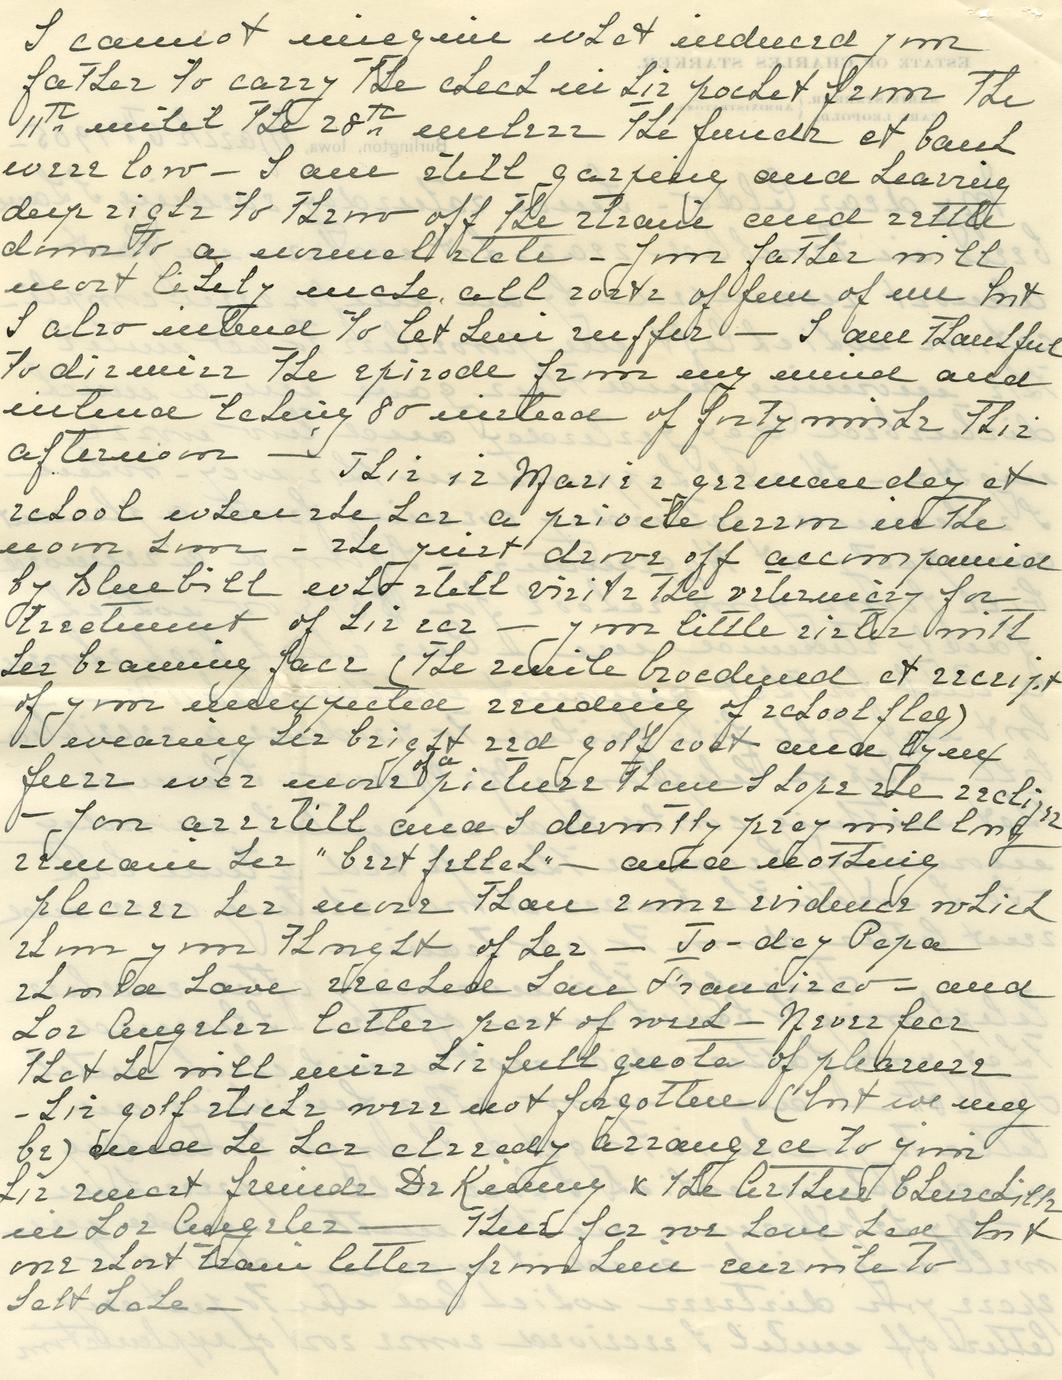 I cannot imagine what induced your
father to carry the check in his pocket from the
11th until the 28th unless the funds at bank
were low — I am still gasping and heaving
deep sighs to throw off the strain and settle
down to a normal state — Your father will
most likely make all sorts of fun of me but
I also intend to let him suffer — I am thankful
to dismiss the episode from my mind and
intend taking 80 instead of forty winks this
afternoon —
This is Marie's german day at
school when she has a private lesson in the
noon hour — she just drove off accompanied
by Bluebill who still visits the veterinary for
treatment of his ear — your little sister with
her beaming face (the smile broadened at receipt
of your unexpected sending of school flag)
— wearing her bright red golf coat and lynx
furs was more of a picture than I hope she realizes
— You are still and I devoutly pray will long
remain her "best fellah" — and nothing
pleases her more than some evidence which
show your thought of her — To-day Papa
should have reached San Francisco — and
Los Angeles latter part of week — Never fear
that he will miss his full quota of pleasure
— his golf sticks were not forgotten (but we may
be) and he has already arranged to join
his smart friends Dr Kinny & the Arthur Churchills
in Los Angeles — Thus far we have had but
one short train letter from him enroute to
Salt Lake —
ESTATE OF CHARLES STARKER
Burlington, Iowa,